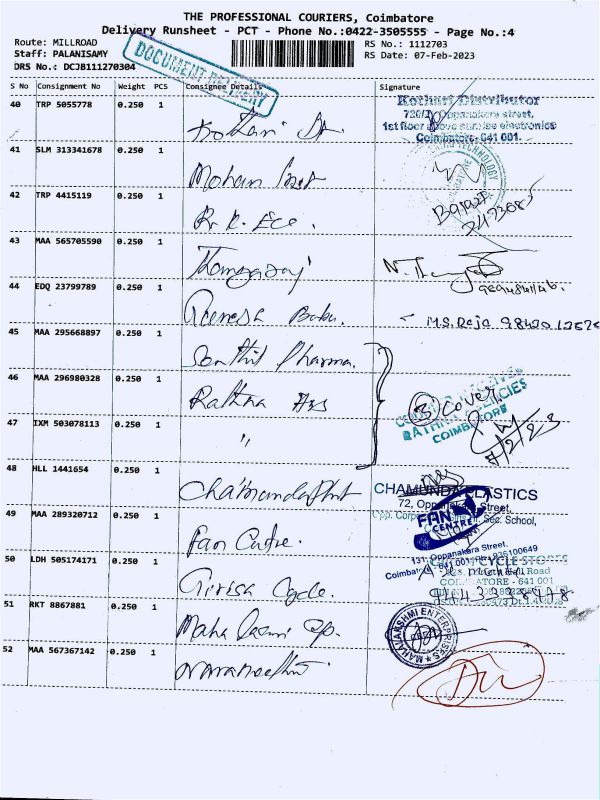 THE PROFESSIONAL COURIERS, Coimbatore
Delivery Runsheet - PCT - Phone No.:0422-3505555 - Page No.:4
Route: MILLROAD
RS No.: 1112703
Staff: PALANISAMY
RS Date: 07-Feb-2023
DRS No.: DCJB111270304
DOCUMENT DELIVERY
S No Consignment No Weight PCS Consignee Details Signature
40 TRP 5055778 0.250 1 Kothari
Kothari Distributor
Oppanakara street,
1st floor above sunrise electronics
Coimbatore- 641 001.
41 SLM 313341678 0.250 1 Mohan
TECHNOLOGY
42 TRP 4415119 0.250 1 R. K. Ece.
43 MAA 565705590 0.250 1 Thangaraj
N. Thangaraj
44 EDQ 23799789 0.250 1 Ramesh Babu.
M.S. Raja
45 MAA 295668897 0.250 1 Senthil Pharma.
46 MAA 296980328 0.250 1 Rathna Ags
③ cover
RATHNA AGENCIES
COIMBATORE
7/2/23
47 IXM 503078113 0.250 1 "
48 HLL 1441654 0.250 1 Chamunda Plast
CHAMUNDA PLASTICS
72, Oppanakara Street,
Opp. Corporation Sec. School,
49 MAA 289320712 0.250 1 Fan Centre.
FAN
CENTRE
131, Oppanakara Street,
Coimbatore - 641 001
50 LDH 505174171 0.250 1 Girisa Cycle.
CYCLE STORES
Hall Road
COIMBATORE - 641 001
51 RKT 8867881 0.250 1 Maha Laxmi
MAHALAKSHMI ENTERPRISES
52 MAA 567367142 0.250 1